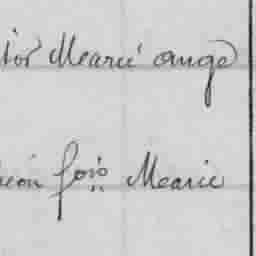 tor Marie ange
éon fois Marie